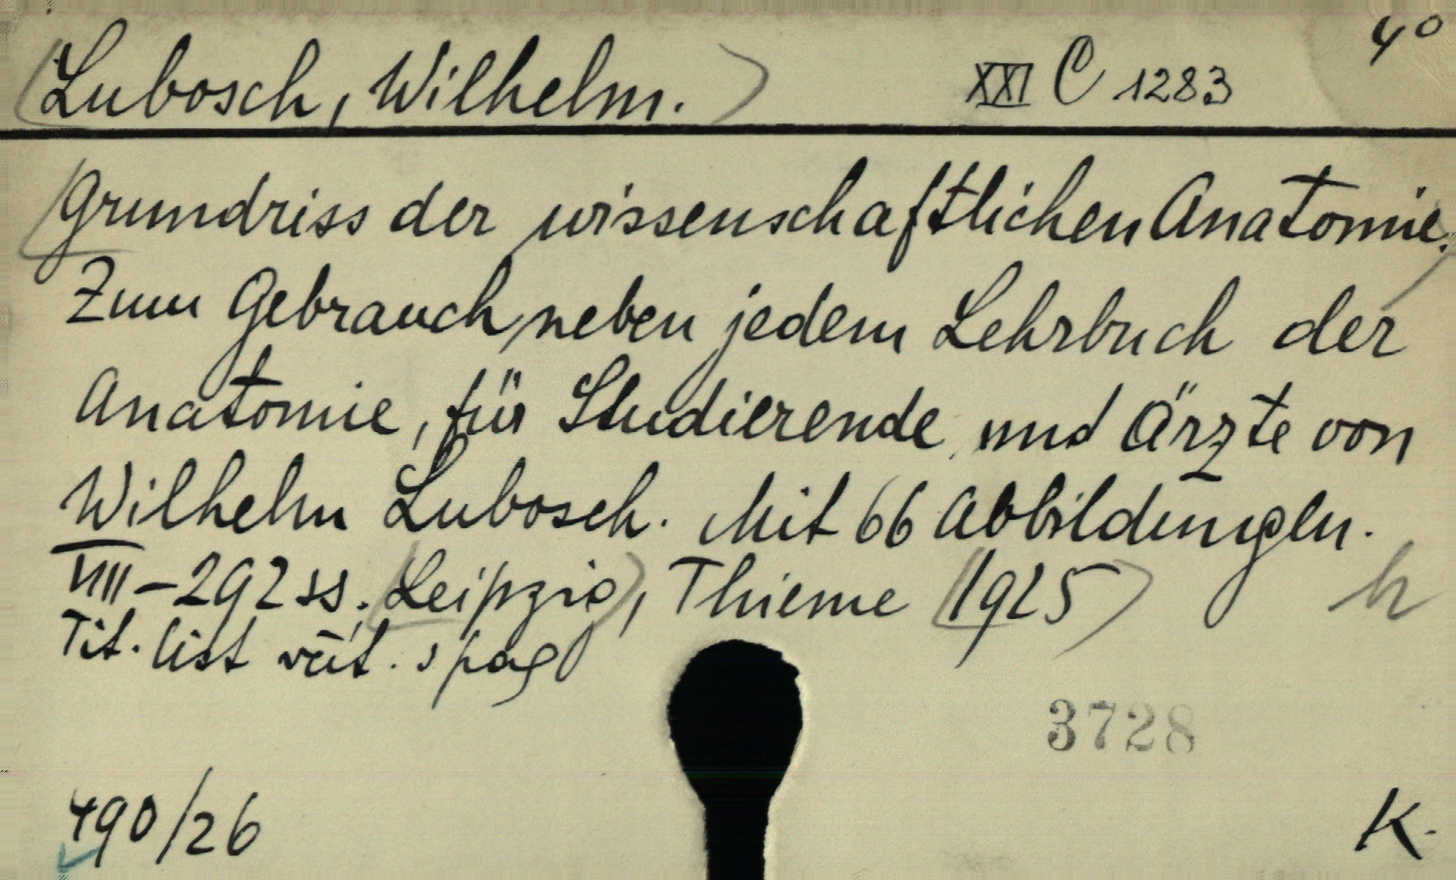 4°
Lubosch, Wilhelm. XXI C 1283
Grundriss der wissenschaftlichen Anatomie.
Zum Gebrauch neben jedem Lehrbuch der
Anatomie, für Studierende und Ärzte von
Wilhelm Lubosch. Mit 66 Abbildungen.
VIII - 292 ss. Leipzig, Thieme 1925
Tit. list
3728
490/26 K.